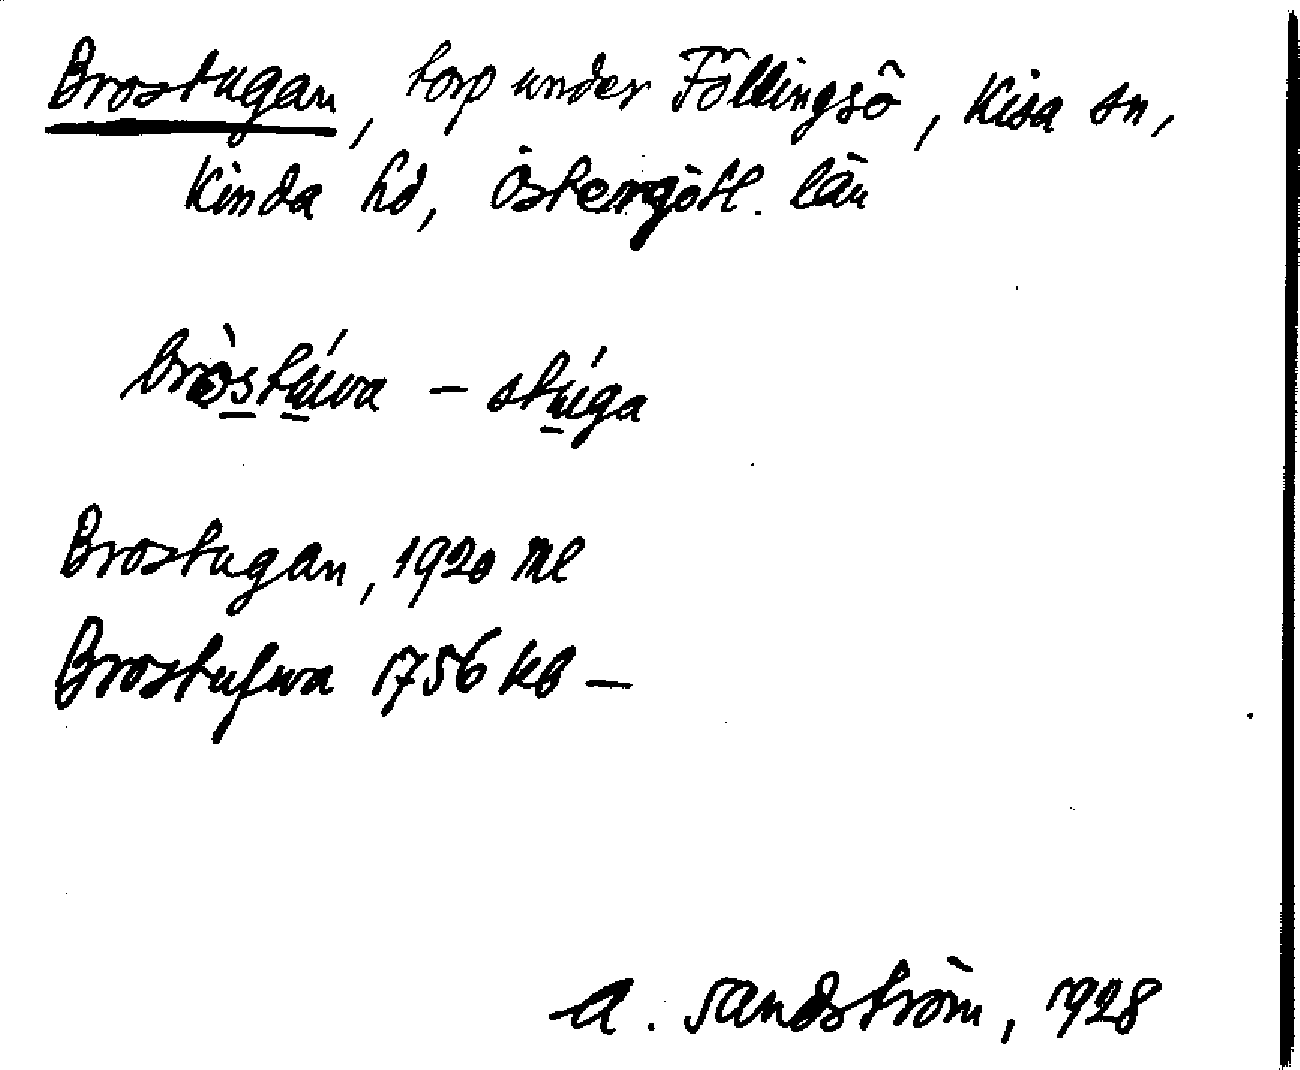 Brostugan, torp under Föllingsö, Kisa sn,
Kinda hd, Östergötl. län
bròstúva – stúga
Brostugan, 1920 Ml
Brostufwa 1756 kb –
A. Sandström, 1928